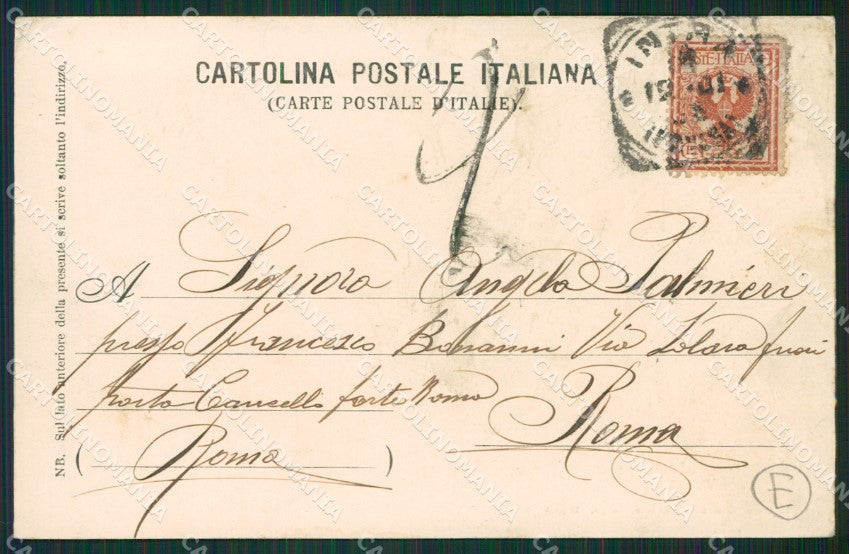 CARTOLINA POSTALE ITALIANA
(CARTE POSTALE D'ITALIE).
POSTE ITALIANE
INTRA
NB. Sul lato anteriore della presente si scrive soltanto l'indirizzo.
A Signora Angela Palmieri
presso Francesco Bonanni Via Solara fuori
Porta Cancello forte Roma
Roma
(Roma)
E
CARTOLINOMANIA